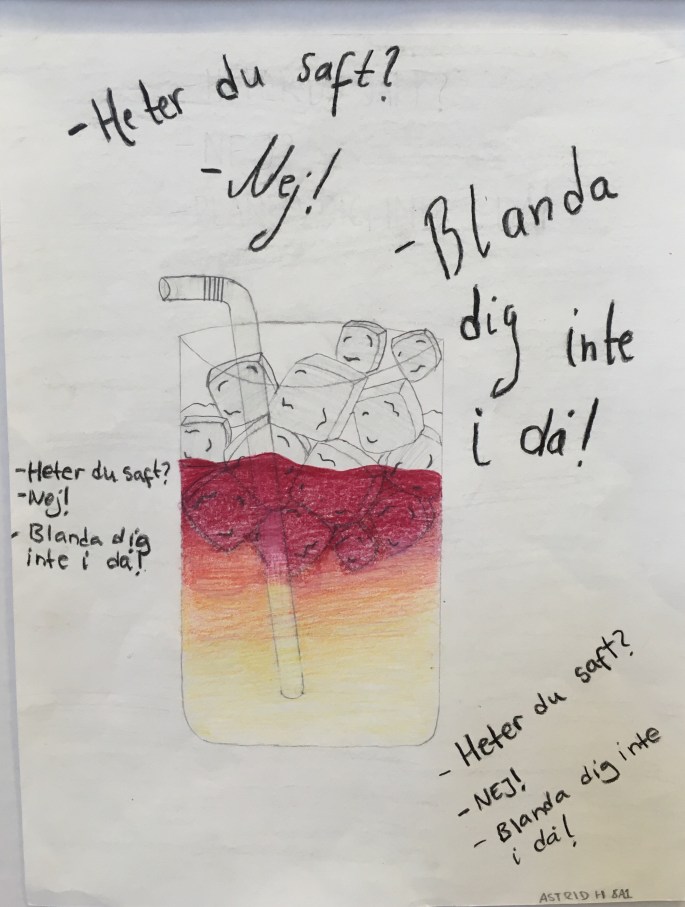 -Heter du saft?
-Nej!
-Blanda
dig inte
i då!
-Heter du saft?
-Nej!
- Blanda dig
inte i då!
- Heter du saft?
- NEJ!
- Blanda dig inte
i då!
ASTRID H 8A1